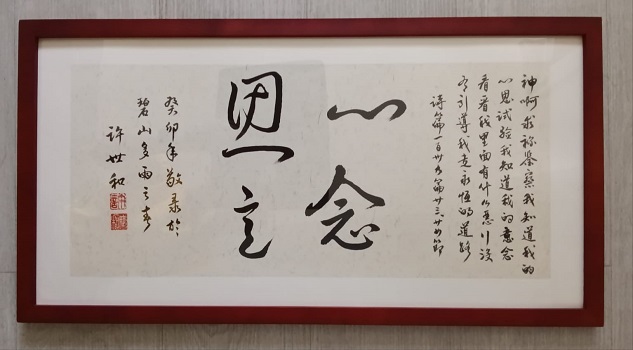 神啊求祢鉴察我知道我的
心思试验我知道我的意念
看看我里面有什么恶行没
有引导我走永恒的道路
诗篇一百卅九篇廿三廿四节
心念
恩言
癸卯年敬录於
碧山多雨之春
许世和